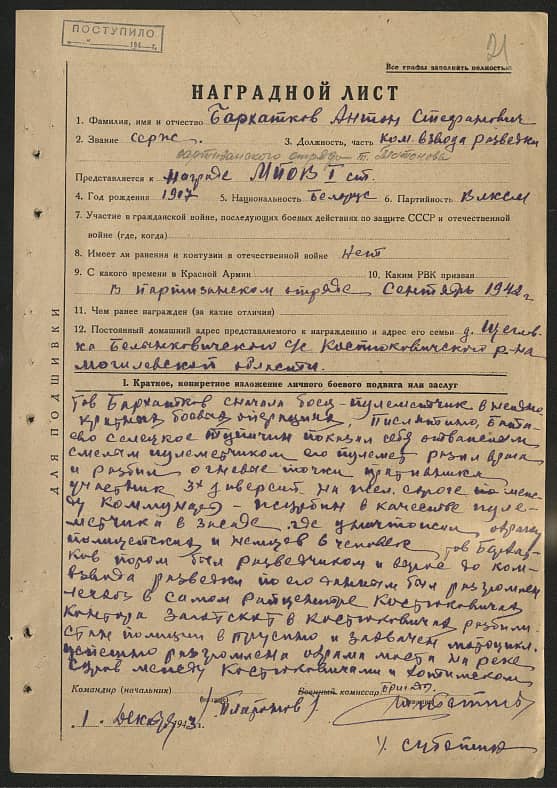 ПОСТУПИЛО
194 г.
21
Все графы заполнить полностью
НАГРАДНОЙ ЛИСТ
1. Фамилия, имя и отчество Бархатков Антон Стефанович
2. Звание серж. 3. Должность, часть ком. взвода разведки
партизанского отряда
Представляется к награде МПОВ I ст.
4. Год рождения 1917 5. Национальность Белорус 6. Партийность ВЛКСМ
7. Участие в гражданской войне, последующих боевых действиях по защите СССР и отечественной
войне (где, когда)
8. Имеет ли ранения и контузии в отечественной войне нет
9. С какого времени в Красной Армии 10. Каким РВК призван
В партизанском отряде Сентябрь 1942 г
11. Чем ранее награжден (за какие отличия)
12. Постоянный домашний адрес представляемого к награждению и адрес его семьи д.
Белынковичского с/с Костюковичского р-на
Могилевской области.
ДЛЯ ПОДШИВКИ
I. Краткое, конкретное изложение личного боевого подвига или заслуг
тов Бархатков сначала боец-пулеметчик в
боевых операциях,
Селецкое Тупичин показал себя отважным
смелым пулеметчиком его пулемет разил врага
и разбил огневые точки противника
участник 3х диверсий на жел. дороге по
ду Коммунары - в качестве пуле-
метчика в засаде, где уничтожен
полицейских и немцев 6 человек тов Бархат-
ков потом был разведчиком и вырос до ком-
взвода разведки по его данным был разгромлен
в самом райцентре Костюковичах
контора в Костюковичах разбили
стан полиции в и захвачен мотоцикл.
успешно разгромлена охрана моста на реке
между Костюковичами и Хотимском
Командир (начальник) Военный комиссар
1 Декабря 1943 г.